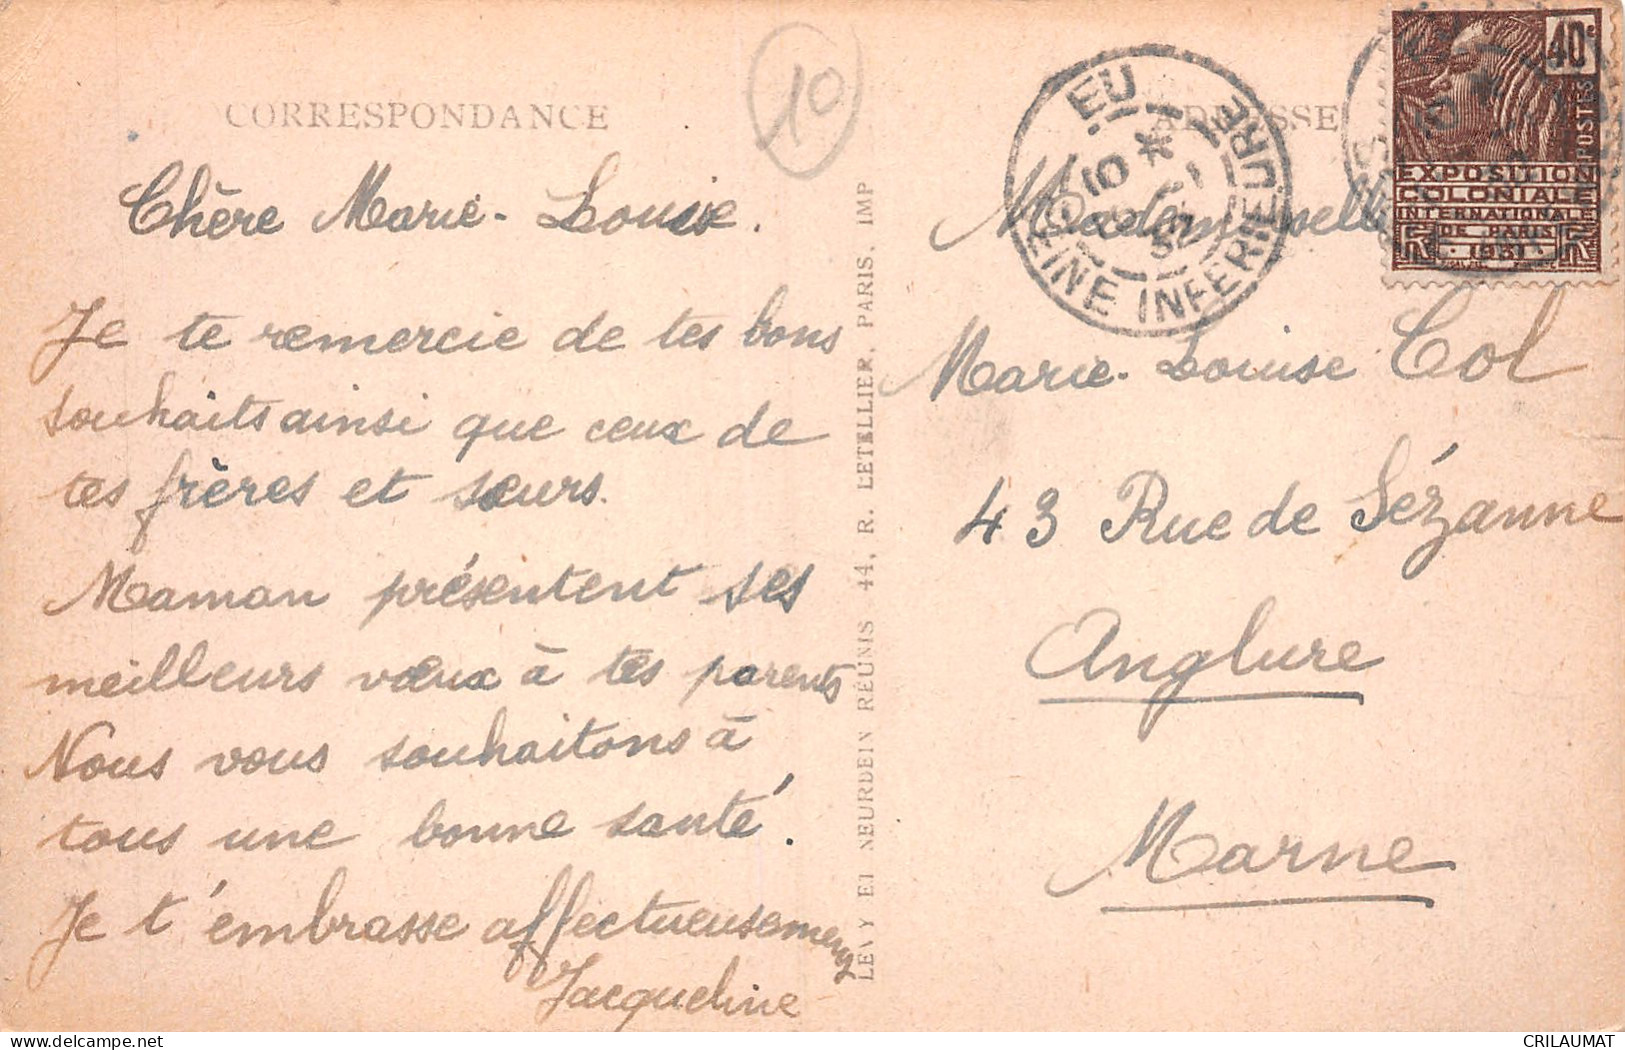 CORRESPONDANCE
10
Chère Marie-Louise.
Je te remercie de tes bons
souhaits ainsi que ceux de
tes frères et sœurs.
Maman présentent ses
meilleurs vœux à tes parents
Nous vous souhaitons à
tous une bonne santé.
Je t'embrasse affectueusement
Jacqueline
LEVY ET NEURDEIN RÉUNIS 44, R. LETELLIER, PARIS. IMP
ADRESSE
EU
SEINE INFERIEURE
40c
POSTES
EXPOSITION
COLONIALE
INTERNATIONALE
DE PARIS
1931
Mademoiselle
Marie-Louise Col
43 Rue de Sézanne
Anglure
Marne
CRILAUMAT